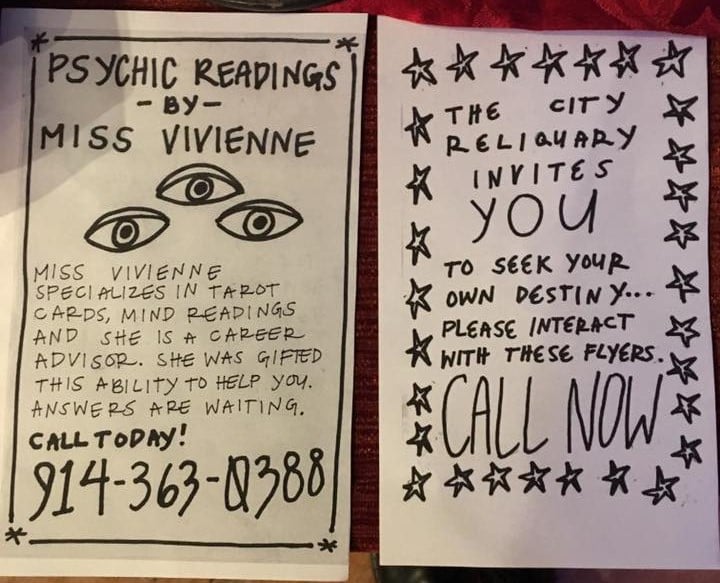 PSYCHIC READINGS
- BY -
MISS VIVIENNE
MISS VIVIENNE
SPECIALIZES IN TAROT
CARDS, MIND READINGS
AND SHE IS A CAREER
ADVISOR. SHE WAS GIFTED
THIS ABILITY TO HELP YOU.
ANSWERS ARE WAITING.
CALL TODAY!
914-363-0388
THE CITY
RELIQUARY
INVITES
YOU
TO SEEK YOUR
OWN DESTINY...
PLEASE INTERACT
WITH THESE FLYERS.
CALL NOW